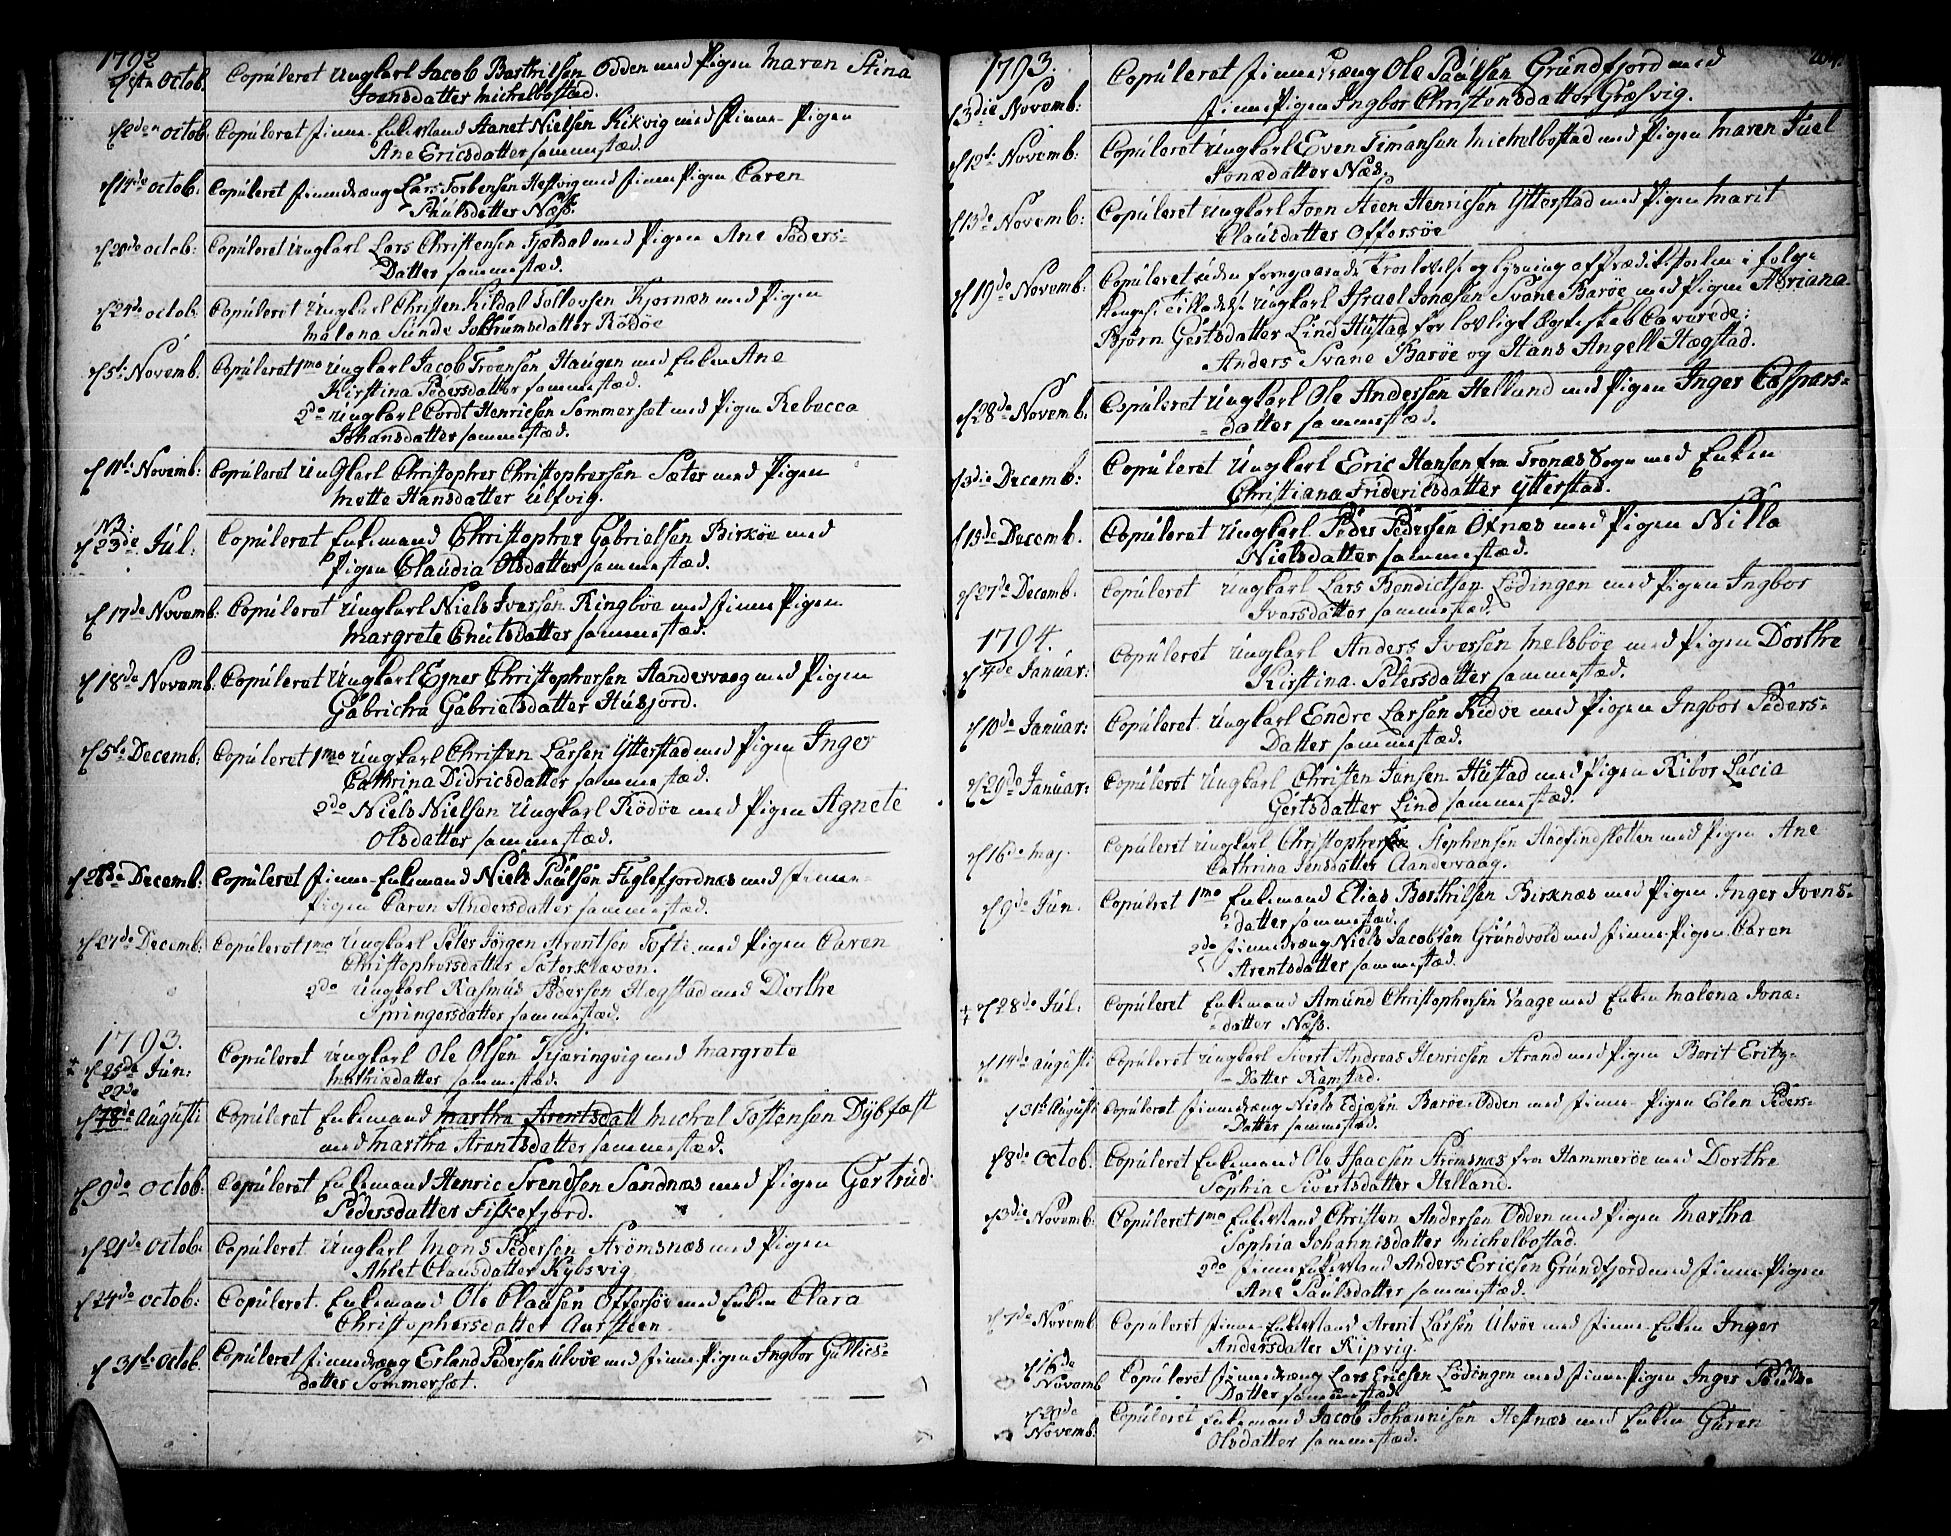 1792
Octob. Copuleret Ungkarl Jacob Barthilsen Odden med Pigen Maren Stina
Joensdatter Michelbostad.
octob Copuleret Finne-Enkemand Aanet Nielsen Kikvig med Finne-Pigen
Ane Ericsdatter sammestæd.
d 14de octob: Copuleret Finnedræng Lars Torbensen Hestvig med Finne Pigen Caren
Paulsdatter Næss.
d 20de octob: Copuleret Ungkarl Lars Christensen Fjeldal med Pigen Ane Peders-
Datter sammestæd.
d 24de octob: Copuleret Ungkarl Christen Kildal Tollevsen Kjornæs med Pigen
Malena Sunde Joktrumsdatter Rödöe
d 5te Novemb: Copuleret 1mo Ungkarl Jacob Troensen Haugen med Enken Ane
Kirstina Pedersdatter sammestæd.
2do Ungkarl Cordt Henricsen Sommersæt med Pigen Rebecca
Johansdatter sammestæd.
d 11te Novemb: Copuleret Ungkarl Christopher Christophersen Sæter med Pigen
Mette Hansdatter Ulvvig.
NB.
d 23de Jul: Copuleret Enkemand Christopher Gabrielsen Birköe med
Pigen Claudia Olsdatter sammestæd.
d 17de Novemb: Copuleret Ungkarl Niels Iversen Ringböe med Finne Pigen
Margrete Cnutsdatter sammestæd.
d 18de Novemb: Copuleret Ungkarl Egner Christophersen Sandervaag med Pigen
Gabrichra Gabrielsdatter Husjord.
d 5te Decemb: Copuleret 1mo Ungkarl Christen Larsen Ytterstad med Pigen Inger
Cathrina Didricsdatter sammestæd.
2do Niels Nielsen Ungkarl Rödöe med Pigen Agnete
Olsdatter sammestæd.
d 26de Decemb: Copuleret Finne-Enkemand Niels Paulsen Fuglefjordnæs med Finne-
Pigen Caren Andersdatter sammestæd.
d 27de Decemb: Copuleret 1mo Ungkarl Peter Jörgen Arentsen Tofte med Pigen Caren
Christophersdatter Sæterkleven.
2do Ungkarl Rasmus Pedersen Hægstad med Dorthe
Springersdatter sammestæd.
1793.
d 25de Jun: Copuleret Ungkarl Ole Olsen Kjæringvig med Margrete
Mathiædatter sammestæd.
22de
d 18de Augusti Copuleret Enkemand Martha Arentsdatt Michel Tostensen Dybfæst
med Martha Arentsdatter sammestæd.
d 9de Octob: Copuleret Enkemand Henric Svendsen Sandnæs med Pigen Gertrud
Pedersdatter Fiskefjord.
d 21de Octob. Copuleret Ungkarl Mons Pedersen Strömsnæs med Pigen
Ahlet Clausdatter Kybsvig
d 24de octob: Copuleret Enkemand Ole Clausen Offersöe med Enken Clara
Christophersdatter Aursteen
d 31te Octob Copuleret Finnedræng Erland Pedersen Ulvöe med Finne Pigen Ingbor Gullics-
datter Sommersæt.
1793.
d 3die Novemb: Copuleret Finnedræng Ole Paulsen Grundfjord med
Finne Pigen Ingbor Christensdatter Græsvig.
d 12te Novemb: Copuleret Ungkarl Even Timansen Michelbostad med Pigen Maren Juel
Jonædatter Næs.
d 13de Novemb: Copuleret Ungkarl Joen Steen Henricsen Ytterstad med Pigen Marit
Clausdatter Offersöe
d 19de Novemb: Copuleret uden foregaaende Trolovelse og Lysning af Prædikestolen i fölge
Kongel: Tilladelse Ungkarl Israel Jonæsen Svane Baröe med Pigen Abriana
Björn Gertsdatter Lind Hustad for lovligt Ægteskab Caverede:
Anders Svane Baröe og Hans Angell Hægstad.
d 28de Novemb. Copuleret Ungkarl Ole Andersen Helland med Pigen Inger Caspars-
datter sammestæd.
d 3die Decemb: Copuleret Ungkarl Eric Hansen fra Tronæs Sogn med Enken
Christiana Fridericsdatter Ytterstad.
d 15de Decemb. Copuleret Ungkarl Peder Pedersen Öxnæs med Pigen Nilla
Nielsdatter sammestæd.
d 27de Decemb. Copuleret Ungkarl Lars Bendictsen Lödingen med Pigen Ingbor
Iversdatter sammestæd.
1794.
d 4de Januar: Copuleret Ungkarl Anders Iversen Melsböe med Pigen Dorthe
Kirstina Petersdatter sammestæd.
d 10de Januar: Copuleret Ungkarl Endre Larsen Ridöe med Pigen Ingbor Peders-
Datter sammestæd.
d 29de Januar: Copuleret Ungkarl Christen Jensen Hustad med Pigen Ribor Lucia
Gertsdatter Lind sammestæd.
d 16de Maj. Copuleret Ungkarl Christopher Stephensen Sandfindsletten med Pigen Ane
Cathrina Jensdatter Sandervaag.
d 9de Jun. Copulret 1mo Enkemand Elias Barthilsen Birknæs med Pigen Inger Ivens-
datter sammestæd.
2do Finnedræng Niels Jacobsen Grundvold med Finne-Pigen Caren
Arentsdatter sammestæd.
d 28de Jul. Copuleret Enkemand Amund Christophersen Vaage med Enken Malena Jonæ-
datter Næss.
d 14de Augusti Copuleret Ungkarl Sivert Andreas Henricsen Strand med Pigen Berit Erity-
Datter Ramstad.
d 31te Augusti Copuleret Finnedræng Niels Edjæsen Baröe-Odden med Finne-Pigen Elen Peders-
Datter sammestæd.
d 8de Octob. Copuleret Enkemand Ole Isaacsen Strömsnæs fra Hammeröe med Dorthe
Sophia Sivertsdatter Helland.
d 3die Novemb: Copuleret 1mo Enkemand Christen Andersen Odden med Pigen Martha
Sophia Johannisdatter Michelbostad.
2do Finne Enkemand Anders Ericsen Grundfjord med Finne-Pigen
Ane Paulsdatter sammestæd.
d 7de Novemb Copuleret Finne-Enkemand Arent Larsen Ulvöe med Finne-Enken Inger
Andersdatter Kipvig.
d 16de
Novemb Copuleret Finnedræng Lars Ericsen Lödingen med Finne-Pigen Inger
Datter sammestæd.
d 20de
Novemb: Copuleret Enkemand Jacob Johannisen Hestnæs med Enken Guren
Olsdatter sammestæd.